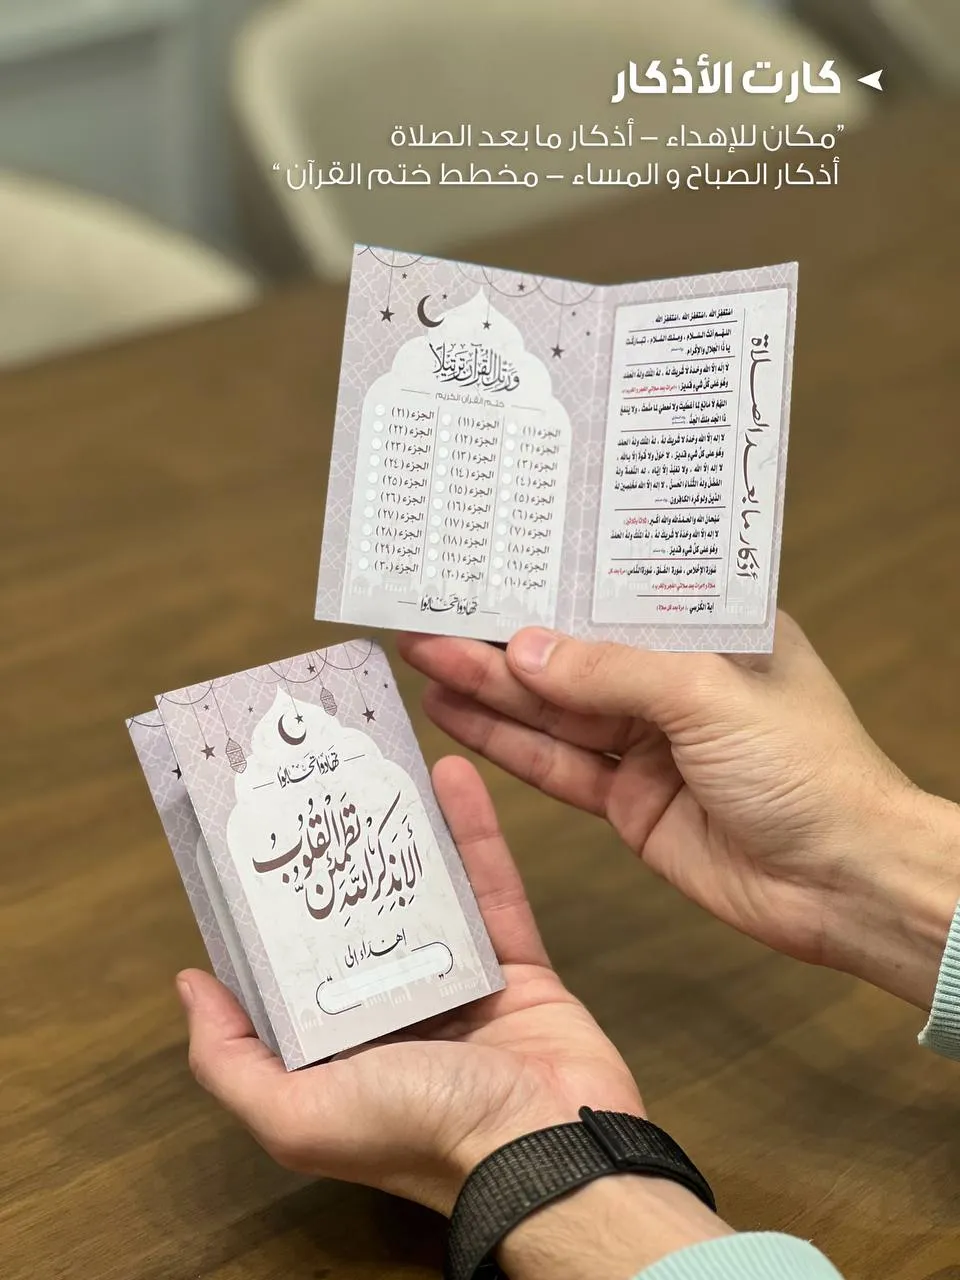 كارت الأذكار
"مكان للإهداء – أذكار ما بعد الصلاة
أذكار الصباح و المساء – مخطط ختم القرآن"
أذكار ما بعد الصلاة
استغفر الله ، استغفر الله ، استغفر الله
اللهم أنت السلام ، ومنك السلام ، تباركت
يا ذا الجلال والإكرام
لا إله إلا الله وحده لا شريك له ، له الملك وله الحمد
وهو على كل شيء قدير
اللهم لا مانع لما أعطيت ولا معطي لما منعت ، ولا ينفع
ذا الجد منك الجد
لا إله إلا الله وحده لا شريك له ، له الملك وله الحمد
وهو على كل شيء قدير ، لا حول ولا قوة إلا بالله ،
لا إله إلا الله ، ولا نعبد إلا إياه ، له النعمة وله
الفضل وله الثناء الحسن ، لا إله إلا الله مخلصين له
الدين ولو كره الكافرون
سبحان الله والحمدلله والله أكبر (ثلاثا وثلاثين)
لا إله إلا الله وحده لا شريك له ، له الملك وله الحمد
وهو على كل شيء قدير
سورة الإخلاص ، سورة الفلق ، سورة الناس
آية الكرسي (مرة بعد كل صلاة)
ورتل القرآن ترتيلا
ختم القرآن الكريم
الجزء (١) الجزء (١١) الجزء (٢١)
الجزء (٢) الجزء (١٢) الجزء (٢٢)
الجزء (٣) الجزء (١٣) الجزء (٢٣)
الجزء (٤) الجزء (١٤) الجزء (٢٤)
الجزء (٥) الجزء (١٥) الجزء (٢٥)
الجزء (٦) الجزء (١٦) الجزء (٢٦)
الجزء (٧) الجزء (١٧) الجزء (٢٧)
الجزء (٨) الجزء (١٨) الجزء (٢٨)
الجزء (٩) الجزء (١٩) الجزء (٢٩)
الجزء (١٠) الجزء (٢٠) الجزء (٣٠)
تهادوا تحابوا
تهادوا تحابوا
ألا بذكر الله تطمئن القلوب
اهداء الى